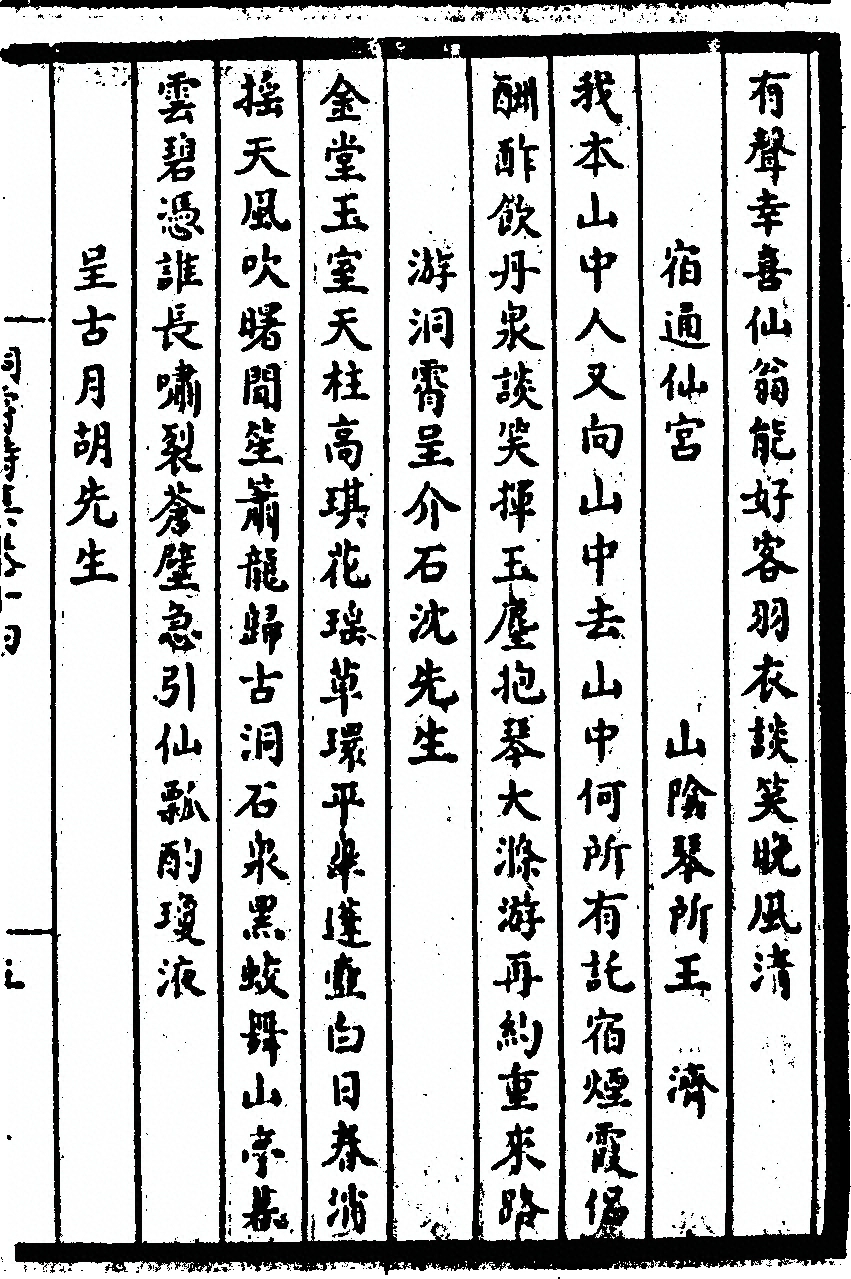 有聲幸喜仙翁能好客羽衣談笑晚風清
宿通仙宮　山陰琴所王　濟
我本山中人又向山中去山中何所有託宿煙霞侶
酬酢飲丹泉談笑揮玉麈抱琴大滌游再約重來路
游洞霄呈介石沈先生
金堂玉室天柱高琪花瑤草環平皋蓬壺白日春消
搖天風吹曙聞笙簫龍歸古洞石泉黑蛟舞山亭暮
雲碧憑誰長嘯裂蒼壁急引仙瓢酌瓊液
呈古月胡先生